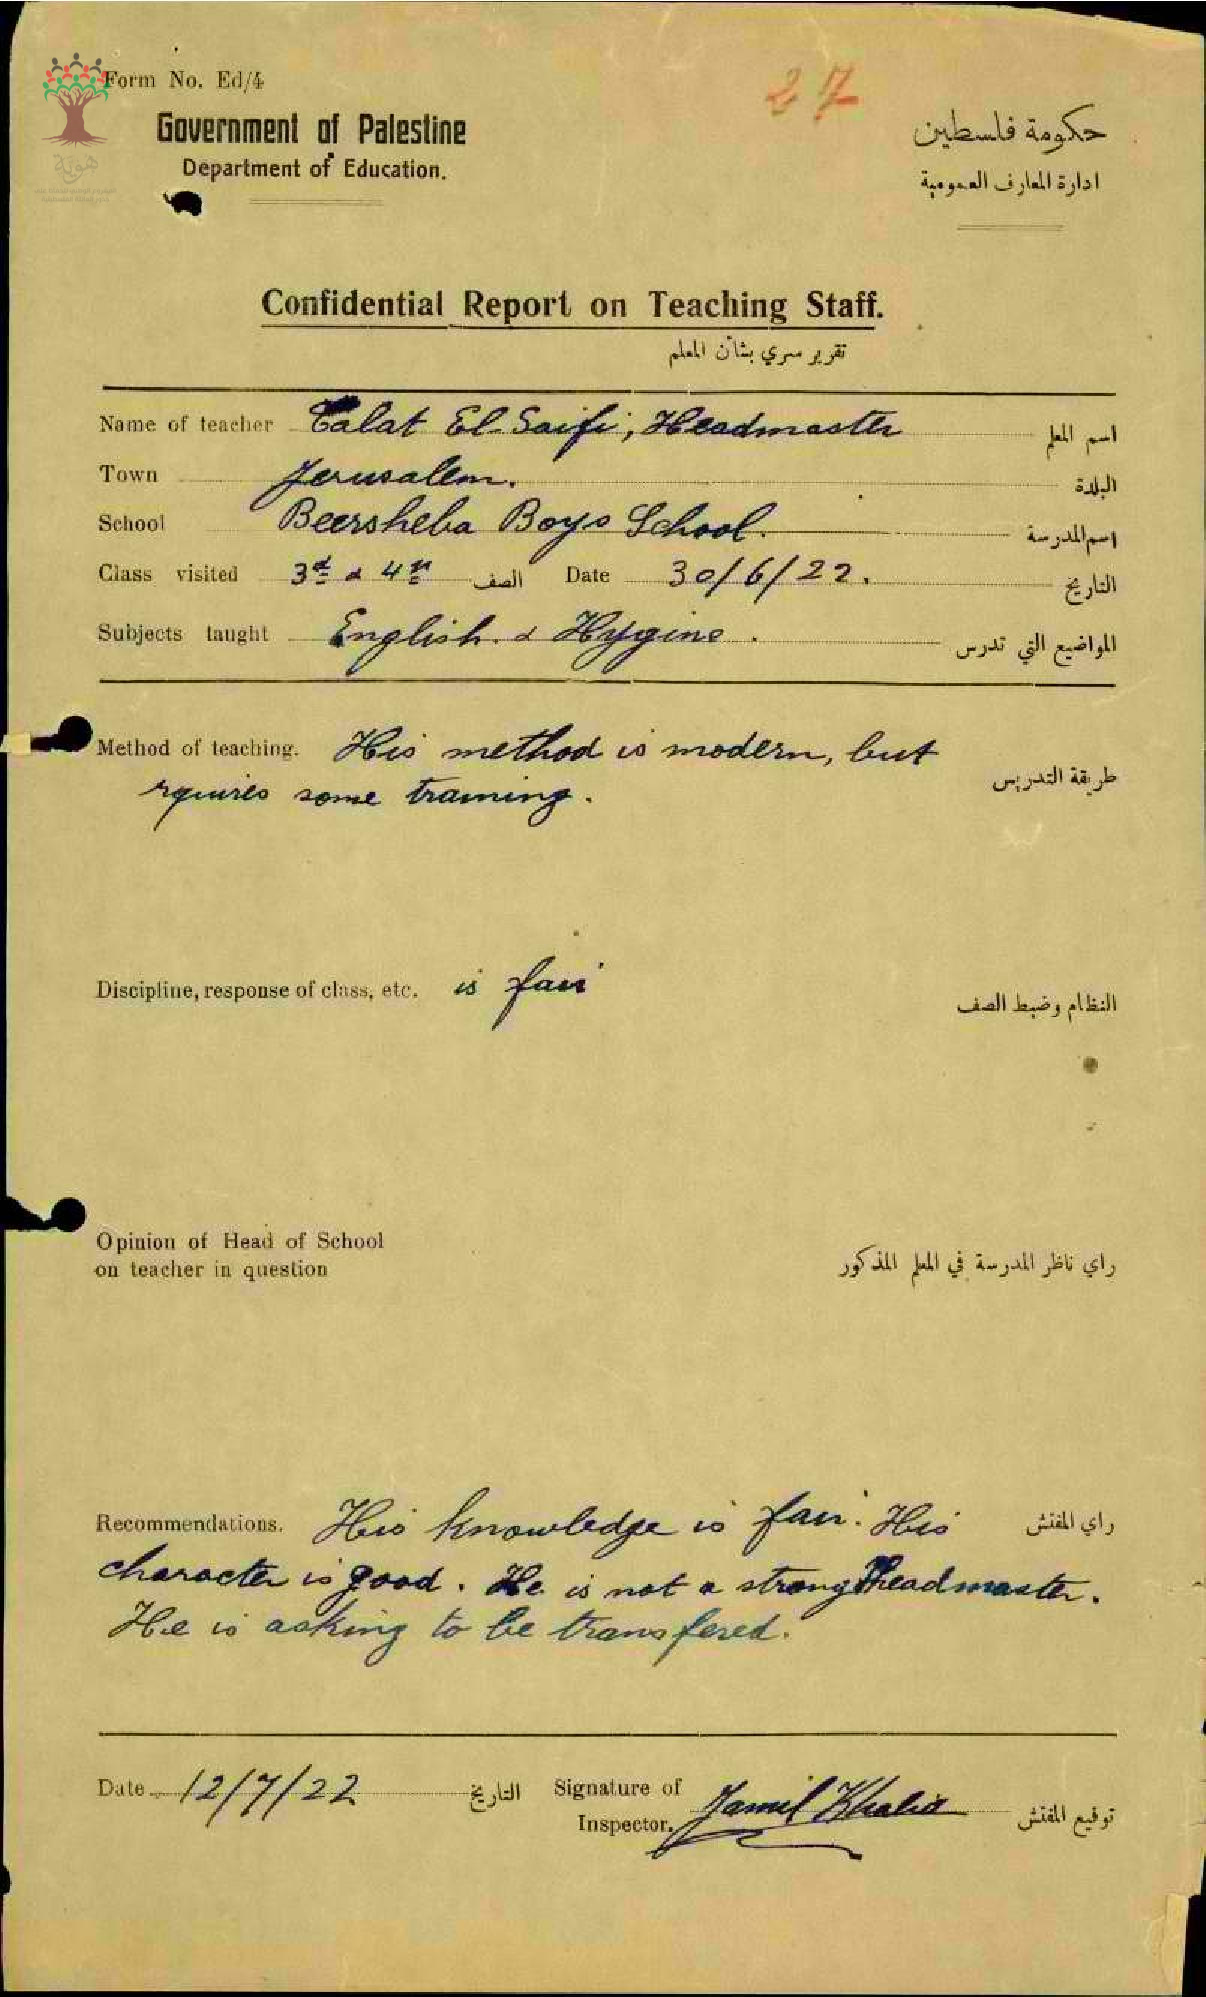 Form No. Ed/4
27
Government of Palestine
حكومة فلسطين
Department of Education.
ادارة المعارف العمومية
هوية
Confidential Report on Teaching Staff.
تقرير سري بشأن المعلم
Name of teacher Talat El-Saifi, Headmaster اسم المعلم
Town Jerusalem. البلدة
School Beersheba Boys School. اسم المدرسة
Class visited 3rd & 4th الصف Date 30/6/22. التاريخ
Subjects taught English & Hygine. المواضيع التي تدرس
Method of teaching. His method is modern, but
rquires some training. طريقة التدريس
Discipline, response of class, etc. is fair النظام وضبط الصف
Opinion of Head of School
on teacher in question راي ناظر المدرسة في المعلم المذكور
Recommendations. His knowledge is fair. His راي المفتش
character is good. He is not a strong headmaster.
He is asking to be transfered.
Date 12/7/22 التاريخ Signature of
Inspector. Jamil Khalid توقيع المفتش